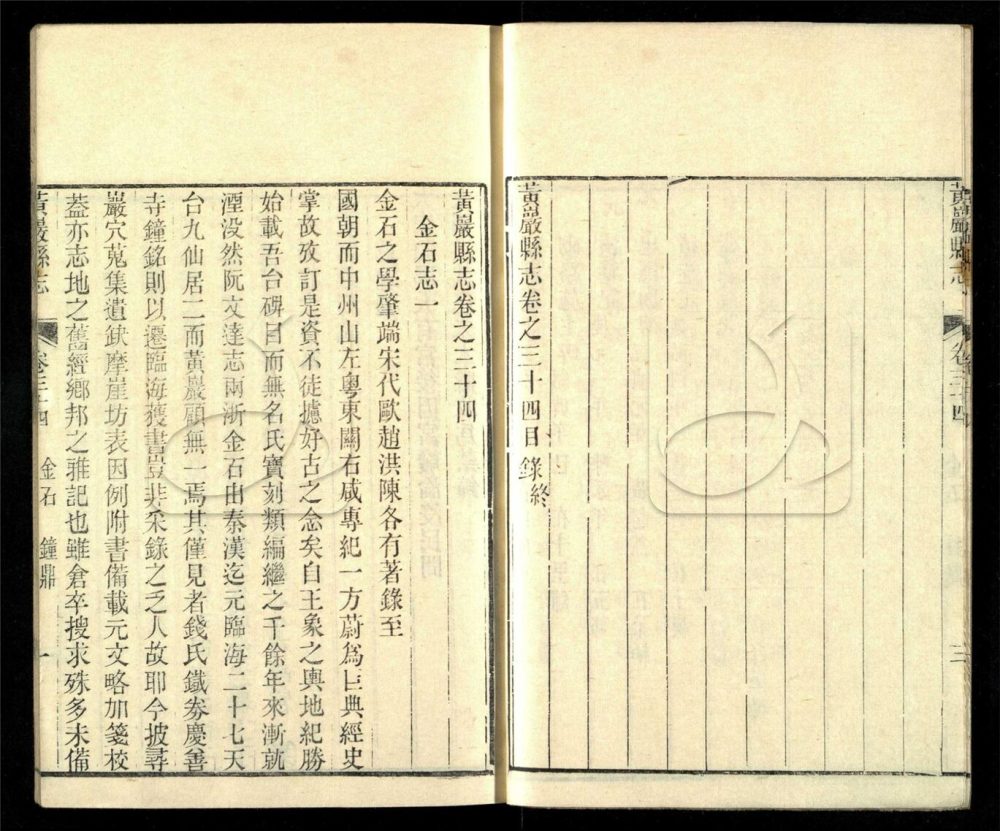 黃巖縣志
卷三十四
三
黃巖縣志卷之三十四目錄終
黃巖縣志卷之三十四
金石志一
金石之學肇端宋代歐趙洪陳各有著錄至
國朝而中州山左粵東關右咸專紀一方蔚爲巨典經史
掌故攷訂是資不徒攄好古之念矣自王象之輿地紀勝
始載吾台碑目而無名氏寶刻類編繼之千餘年來漸就
湮没然阮文達志兩浙金石由秦漢迄元臨海二十七天
台九仙居二而黃巖顧無一焉其僅見者錢氏鐵劵慶善
寺鐘銘則以遷臨海獲書豈非采錄之乏人故耶今披尋
巖穴蒐集遺鈌摩崖坊表因例附書備載元文略加箋校
葢亦志地之舊經鄉邦之雅記也雖倉卒搜求殊多未備
黃巖縣志
卷三十四
金石
鐘鼎
一